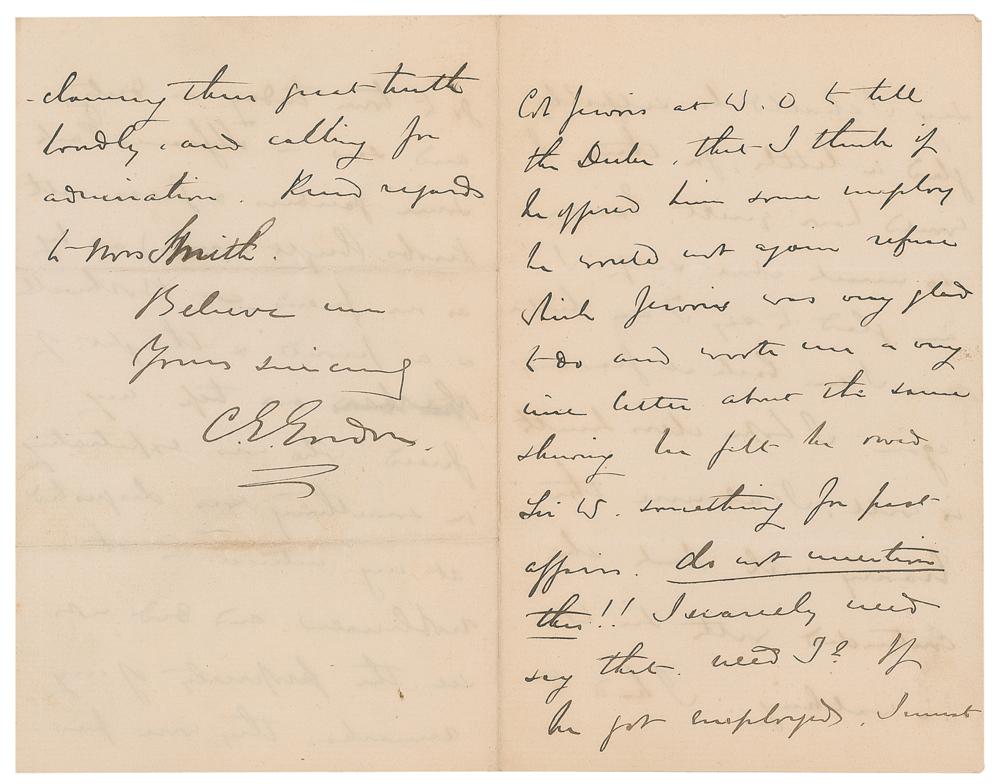 -claiming their great truth
loudly, and calling for
admiration. Kind regards
to Mrs Smith.
Believe me
Yours sincerely
C. E. Gordon.
Col Jervois at W. O to tell
the Duke, that I think if
he offered him some employ
he would not again refuse
which Jervois was very glad
to do and wrote me a very
nice letter about the same
shewing he felt he owed
Sir W. something for past
affairs. do not mention
this!! I scarcely need
say that. need I? If
he got employed, I must